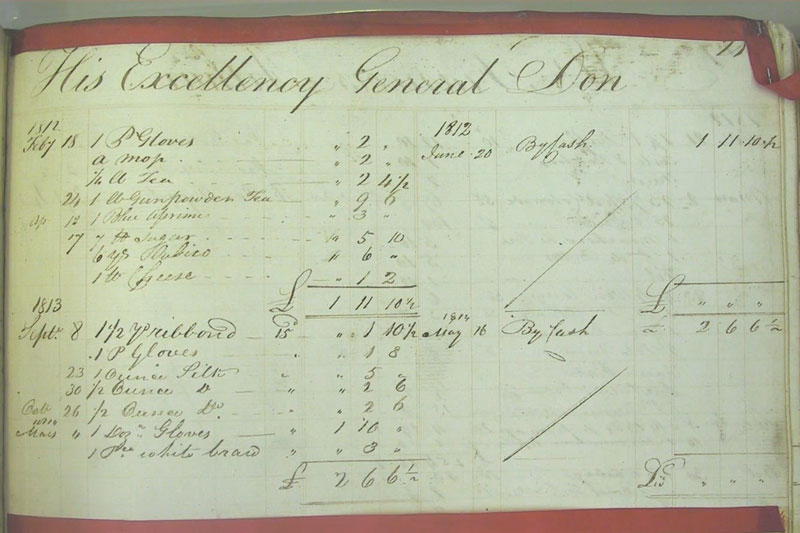 His Excellency General Don
1812
Feby 18 1 Pr Gloves " 2 "
a mop " 2 "
1/4 lb Tea " 2 4 1/2
24 1 lb Gunpowder Tea " 9 6
Ap 12 1 Blue " 3 "
17 7 lb Sugar " 5 10
6 yds " 6 "
1 lb Cheese " 1 2
£ 1 11 10 1/2
1812
June 20 By Cash 1 11 10 1/2
£ " " "
1813
Septr 8 1 1/2 yd ribbond " 1 10 1/2
1 Pr Gloves " 1 8
23 1 Ounce Silk " 5 "
30 1/2 Ounce Do " 2 6
Octb 26 1/2 Ounce Do " 2 6
1814
Mars " 1 Dozn Gloves " 1 10 "
1 Pce white braid " " 3 "
£ 2 6 6 1/2
1814
May 16 By Cash 2 6 6 1/2
" " "